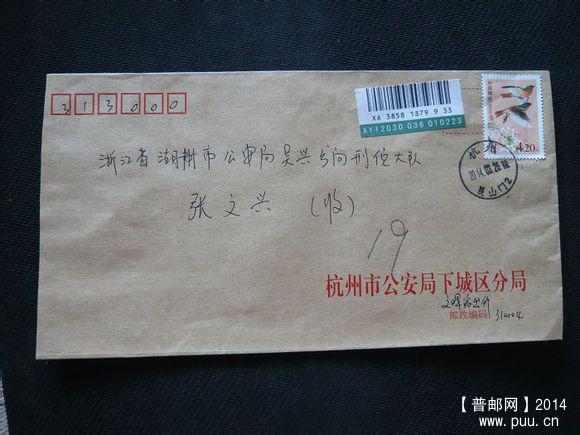 313000
XA 3858 1879 9 33
XY12030 036 010223
4.20
杭州
2014.03.26.18
浙江省湖州市公安局吴兴分局刑侦大队
张文兴 (收)
19
杭州市公安局下城区分局
文晖派出所
邮政编码: 310004
【普邮网】2014
www.puu.cn